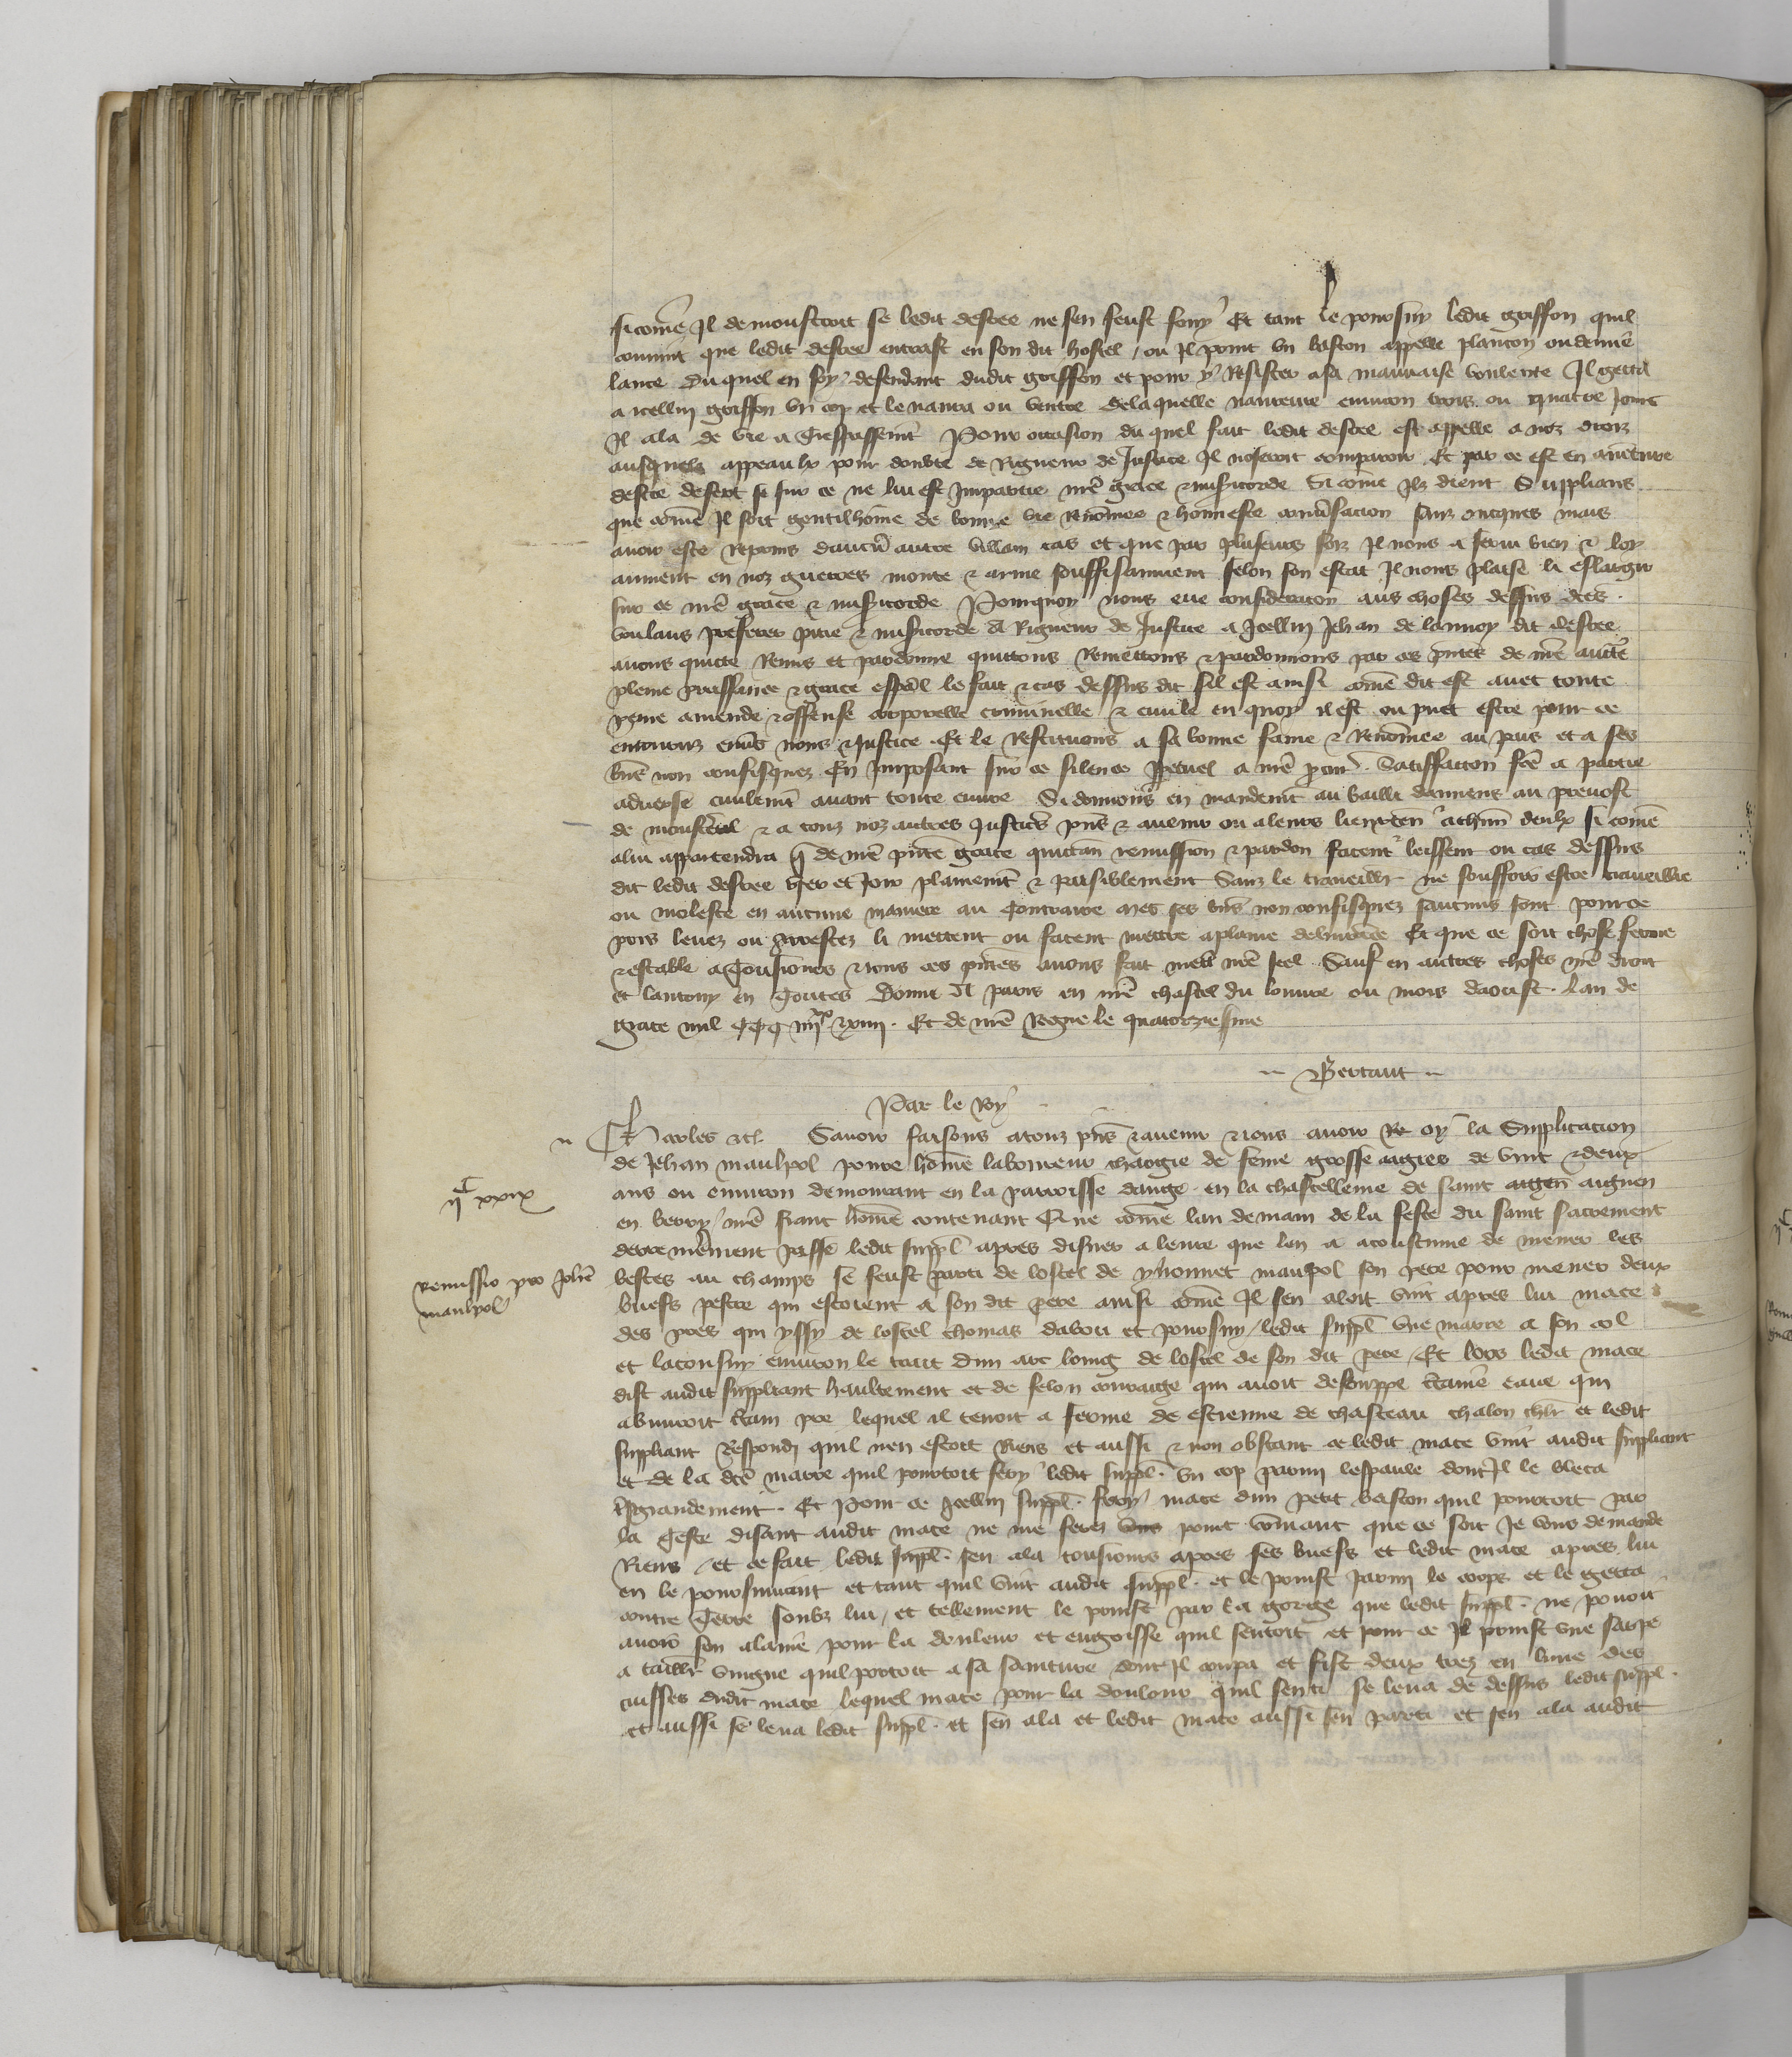 sicome Il demoustroit se ledit destre ne sen feust fouy Et tant le poursuy ledit griffon quil
convint que ledit destre entrast en son dit hostel / ou Il print un baston appelle plancon ou demie
lance Du quel en soy defendant dudit griffon et pour y Resister a sa mauvaise voulente Il getta
a icellui griffon un cop et le navra ou ventre de la quelle navreure environ trois ou quatre Jours
Il ala de vie a trespassemt Pour occasion du quel fait ledit destre est appelle a noz droiz
ausquelx appeaulx pour doubte de Rigueur de Justice Il noseroit comparoir Et par ce est en aventure
destre desert se sur ce ne lui est Impartie nre grace & misericorde Si come Ilz dient Supplians
que come Il soit gentilhome de bonne vie Renomee & honneste conversacion sanz oncques mais
avoir este Repris daucun autre villain cas et que par pluseurs foiz Il nous a servi bien & loy
aument en noz guerres monte & arme souffisanment selon son estat Il nous plaise li eslargir
sur ce nre grace & misericorde Pourquoy nous eue consideracion aus choses dessus dces
voulans preferer pitie & misericorde a Rigueur de Justice a Icellui Jehan de lannoy dit destre
avons quicte Remis et pardonne quittons Remettons & pardonnons par ces pntes de nre aucte
pleine puissance & grace espal le fait & cas dessus dit sil est ainsi come dit est avec toute
peine amende & offense corporelle criminelle & civile en quoy il est ou puet estre pour ce
encouruz envers nous & Justice Et le Restituons a sa bonne fame & Renomee au pais et a ses
biens non confisquez En Imposant sur ce silence perpetuel a nre procur Satisfaccion fce a partie
adverse civilemt avant toute euvre Si donnons en mandemt au bailli damiens au prevost
de monsterueil & a touz noz autres Justiciers pns & avenir ou a leurs lieuxten a chun deulx si come
a lui appartendra q de nre pnte grace quictan remission & pardon facent & leissent ou cas dessus
dit ledit destre user et Joir plainemt & paisiblement Sanz le traveillr ne souffrir estre traveillie
ou moleste en aucune maniere au Contraire mes ses biens non confisquez saucuns sont pour ce
pris levez ou arrestez li mettent ou facent mettre a plaine delivrance Et que ce soit chose ferme
& estable a Tousiours & nous ces pntes avons fait mettre nre seel Sauf en autres choses nre droit
et lautruy en Toutes Donne A paris en nre chastel du louvre ou mois daoust lan de
grace mil CCC iiiixx & xiiii Et de nre Regne le quatorziesme
Bertaut
Par le Roy
Charles &c Savoir faisons a touz pns & avenir & nous avoir Re oy la Supplicacion
de Jehan maulpol povre home laboureur chargie de feme grosse aagies de vint & deux
ans ou environ demourant en la parroisse dange en la chastellenie de saint aigen aignen
en berry / nre siant home contenant Que come landemain de la feste du saint sacrement
derrenierement passe ledit suppl apres disner a leure que len a acoustume de mener les
bestes au champs se feust parti de lostel de phonnet maupol son pere pour mener deux
buefs pestre qui estoient a son dit pere ainsi come Il sen aloit vint apres lui mace
des pres qui yssy de lostel thomas davou et poursuy / ledit suppl une marre a son col
et laconsuy environ le trait dun arc loing de lostel de son dit pere / Et lors ledit mace
dist audit suppliant haultement et de felon couraige qui avoit destouppe ctaine eaue qui
abuvroit ctain pre lequel il tenoit a ferme de estienne de chasteau chalon chlr et ledit
suppliant Respondi quil nen estoit Riens et aussi & non obstant ce ledit mace vint audit suppliant
et de la dce marre quil portoit fery ledit suppl un cop parmi lespaule dont Il le bleca
tsgrandement Et Pour ce Icellui suppl fery mace dun petit baston quil portoit par
la teste disant audit mace ne me ferez vous point comant que ce soit Je vous demande
Riens / et ce fait ledit suppl sen ala tousiours apres ses buefs et ledit mace apres lui
en le poursuivant et tant quil vint audit suppl et le prinst parmi le corps et le getta
contre Terre soubz lui / et tellement le prinst par la gorge que ledit suppl ne povoit
avoir son alaine pour la douleur et engoisse quil sentoit et pour ce Il prinst une sarpe
a taillr vingne quil portoit a sa sainture dont Il coupa et fist deux trez en lune des
cuisses dudit mace lequel mace pour la doulour quil senti se leva de dessus ledit suppl
et aussi se leva ledit suppl et sen ala et ledit mace aussi sen parti et sen ala audit
iiC xxix
Remissio pro Johe
maulpol